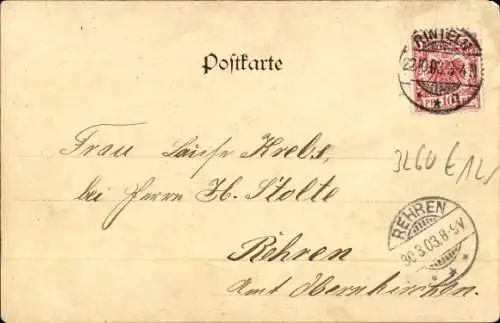 Postkarte
RINTELN
PF 10
Frau Louise Krebs,
3260 E 12,-
bei Herrn H. Stolte
REHREN
30.3.03.8-9V.
Rehren
Amt Obernkirchen.